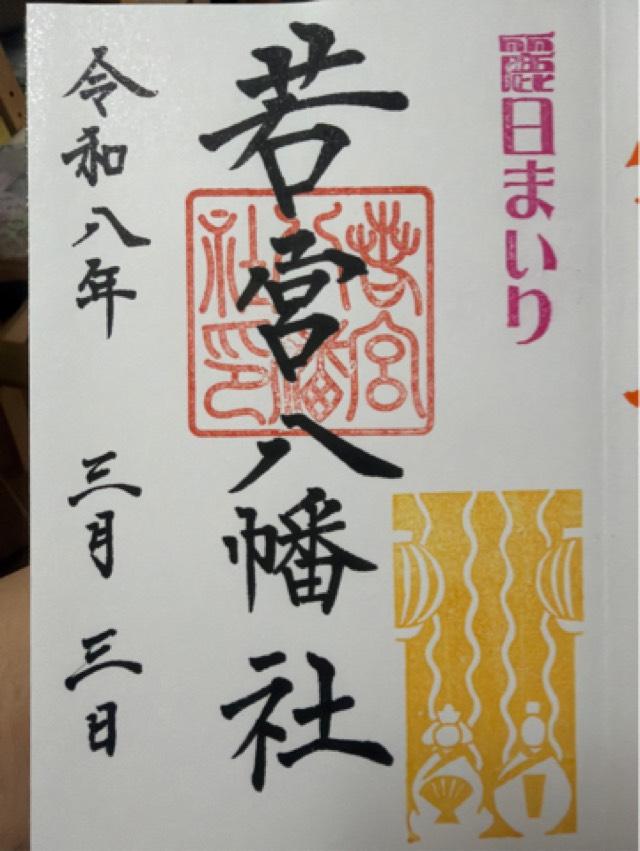 麗日まいり
若宮八幡社
若宮八幡社印
令和八年 三月三日